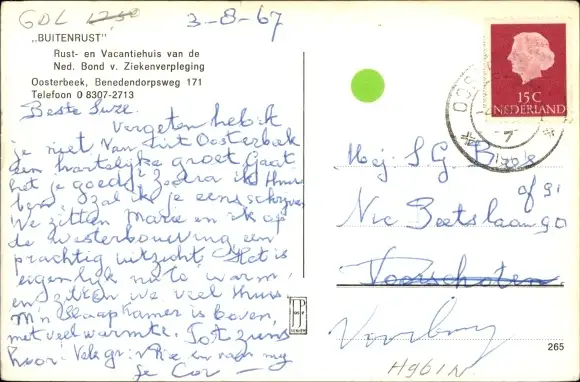 GDL 12,50
3-8-67
„BUITENRUST"
Rust- en Vacantiehuis van de
Ned. Bond v. Ziekenverpleging
Oosterbeek, Benedendorpsweg 171
Telefoon 0 8307-2713
Beste Suze.
Vergeten heb ik
je niet Van uit Oosterbeek
een hartelijke groet Gaat
het je goed? Zodra ik thuis
ben. Zal ik je eens schrijven
We zitten Marie en ik op
de Westerbouwing een
prachtig uitzicht Het is
eigenlijk nu te warm,
en zitten we veel thuis
M'n slaapkamer is boven,
met veel warmte. Tot ziens
hoor! Vele gr: v Rie en van mij
je Cor —
15 C
NEDERLAND
7
Mej. S G
Nic Beetslaan 90
Voorschoten
Voorburg
265
H961N